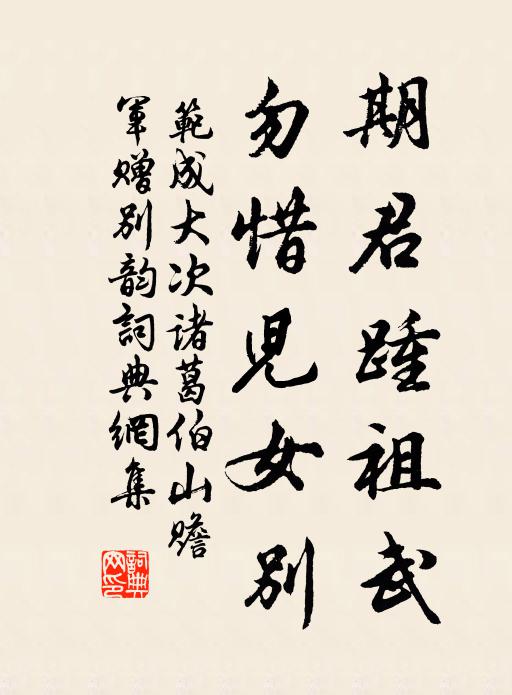 期君踵祖武
勿惜児女別
範成大次諸葛伯山贍
軍贈別韵詞典網集
詞典
网印